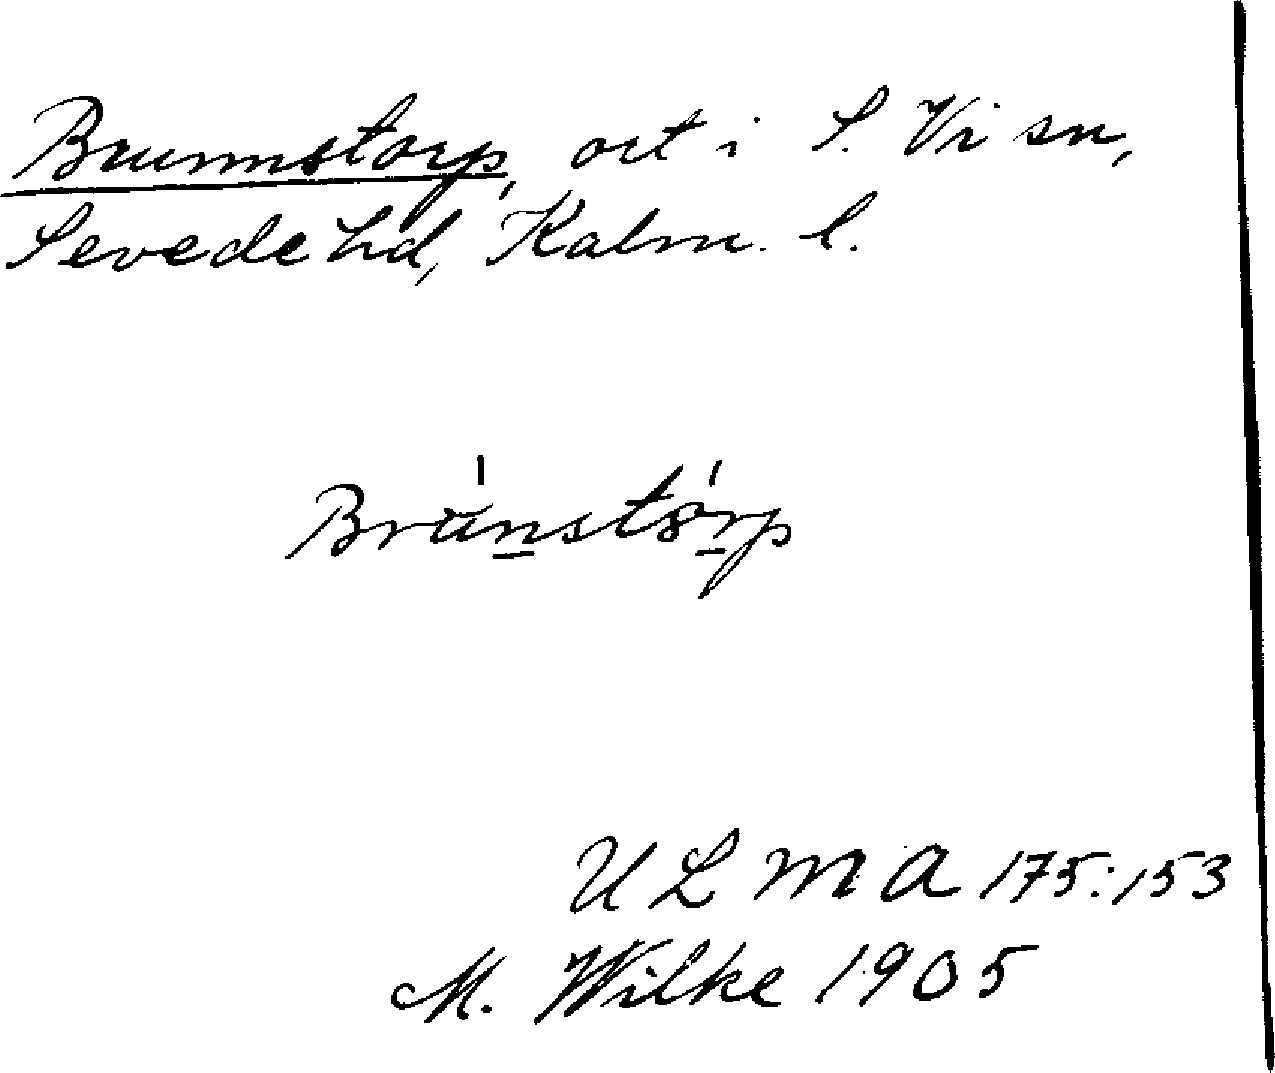 Brunnstorp, ort i S. Vi sn,
Sevede hd, Kalm. l.
Brunstorp
ULMA 175:153
M. Wilke 1905